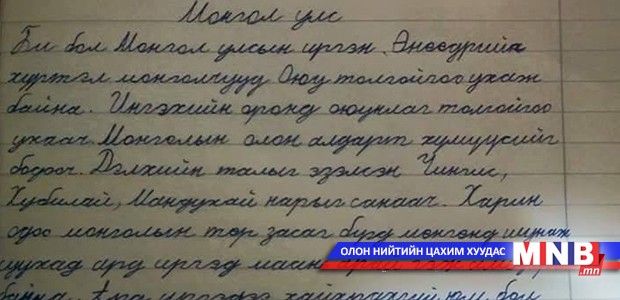 Монгол улс
Би бол Монгол улсын иргэн. Өнөөдрийг
хүртэл монголчууд Оюу толгойгоо ухаж
байна. Ингэхийн оронд оюунлаг толгойгоо
ухаач. Монголын олон алдарт хүмүүсийг
бодооч. Дэлхийн талыг эзэлсэн Чингис,
Хубилай, Мандухай нарыг санаач. Харин
одоо монголын төр засаг бүрд мөнгөнд шунаж
ард иргэд
ОЛОН НИЙТИЙН ЦАХИМ ХУУДАС MNB.mn